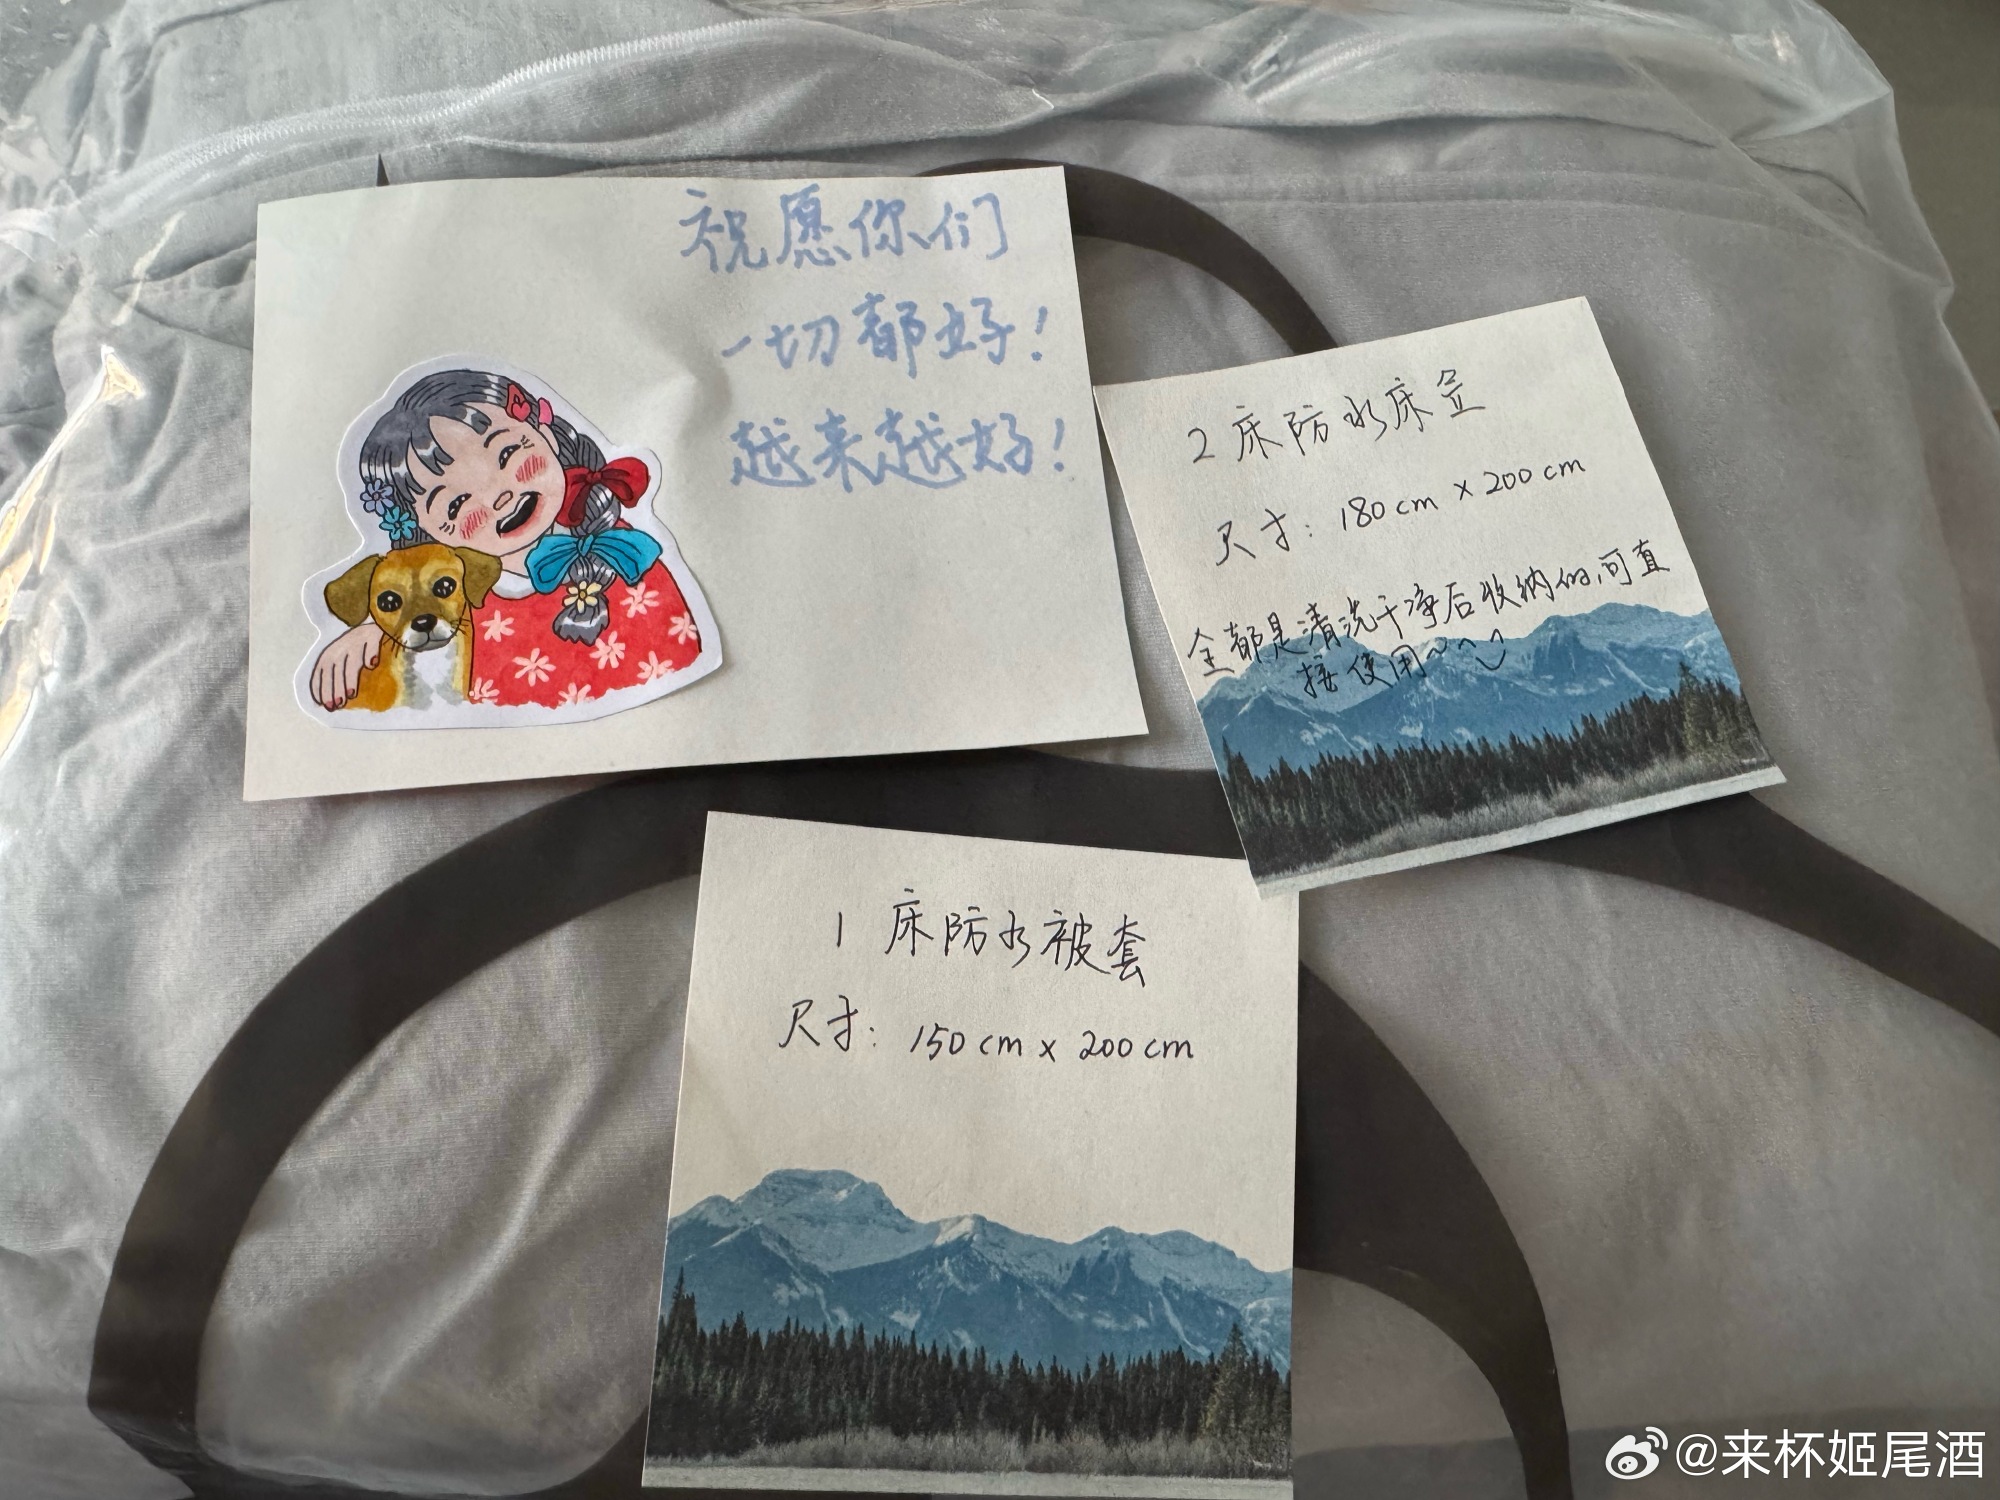 祝愿你们
一切都好！
越来越好！
2床防水床笠
尺寸：180cm x 200cm
全都是清洗干净后收纳的,可直
接使用~
1床防水被套
尺寸：150cm x 200cm
@来杯姬尾酒